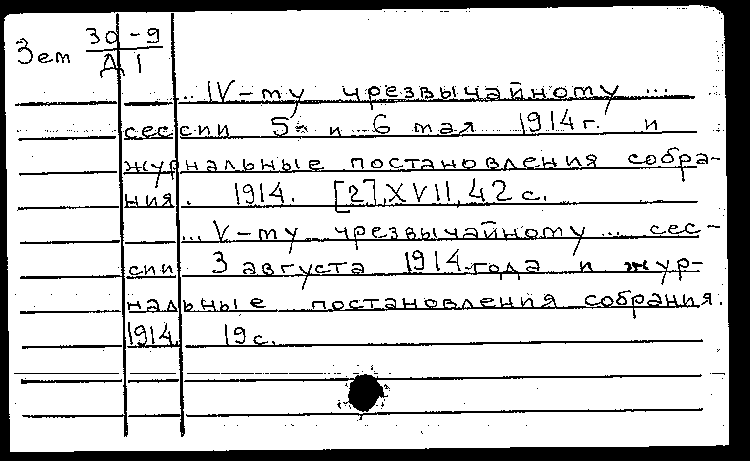 Зем 30-9
Д 1
... IV-му чрезвычайному ...
сессии 5 и 6 мая 1914г. и
журнальные постановления собра-
ния. 1914. [2], XVII, 42 с.
... V-му чрезвычайному ... сес-
сии 3 августа 1914 года и жур-
нальные постановления собрания.
1914. 19 с.